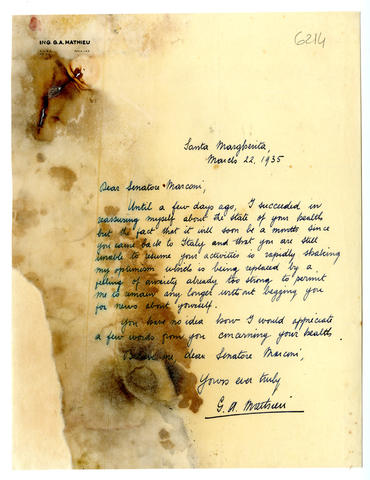 ING. G. A. MATHIEU
6214
Santa Margherita,
March 22, 1935
Dear Senatore Marconi,
Until a few days ago, I succeeded in
reassuring myself about the state of your health
but the fact that it will soon be a months since
you came back to Italy and that you are still
unable to resume your activities is rapidly shaking
my optimism which is being replaced by a
feeling of anxiety already too strong to permit
me to remain any longer without begging you
for news about yourself.
You have no idea how I would appreciate
a few words from you concerning your health.
Believe me, dear Senatore Marconi,
Yours ever truly
G. A. Mathieu